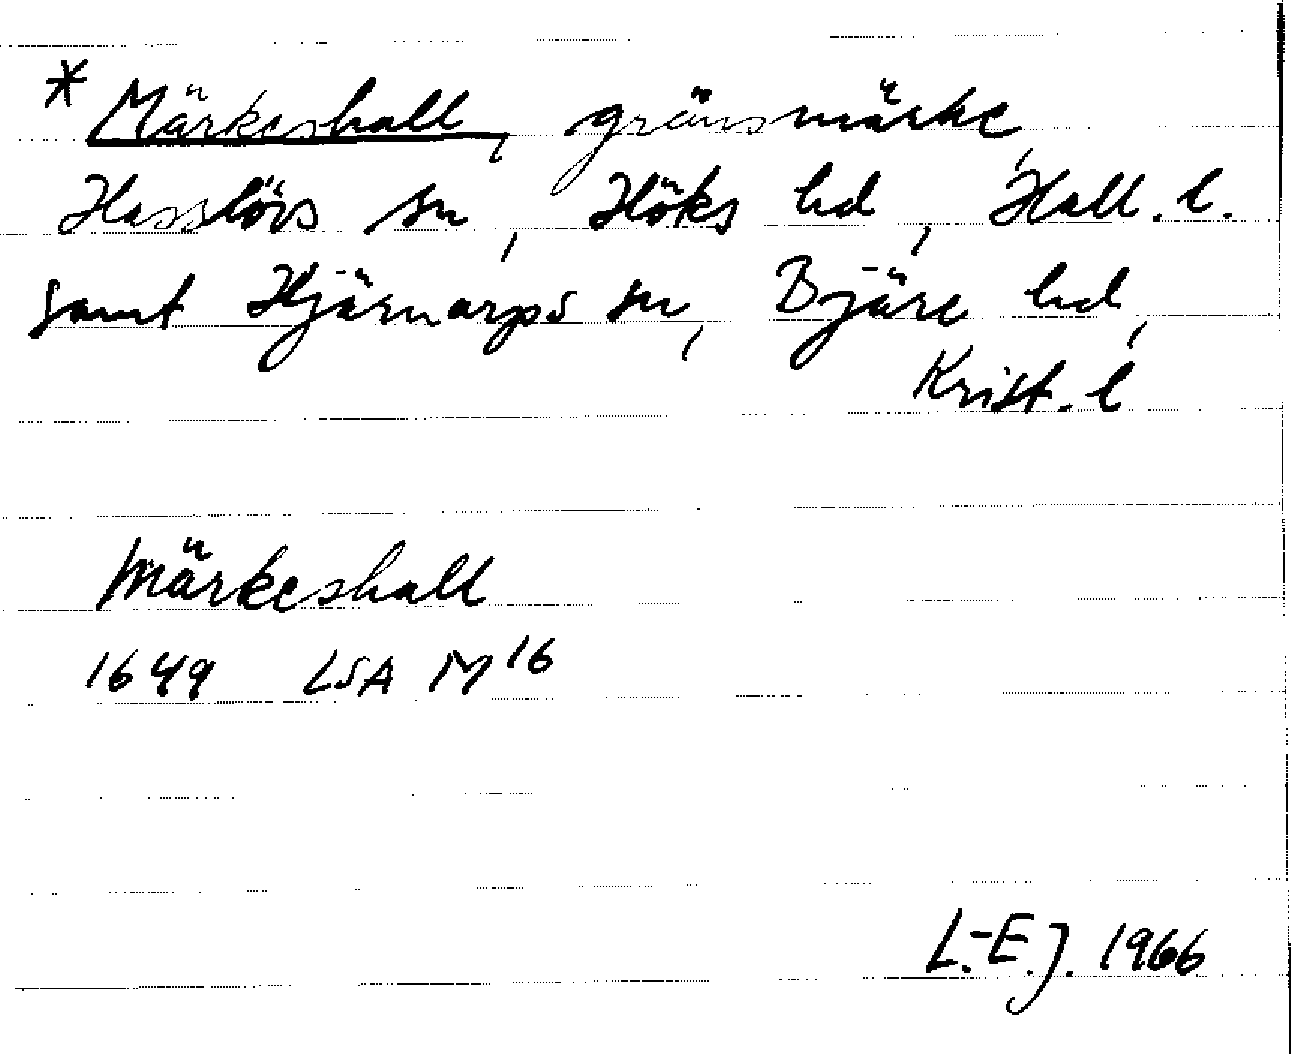 * Märkeshall, gränsmärke,
Hasslövs sn, Höks hd, Hall. l.
samt Hjärnarps sn, Bjäre hd,
Krist. l
Märkeshall
1649 LSA M 16
L.-E.J. 1966